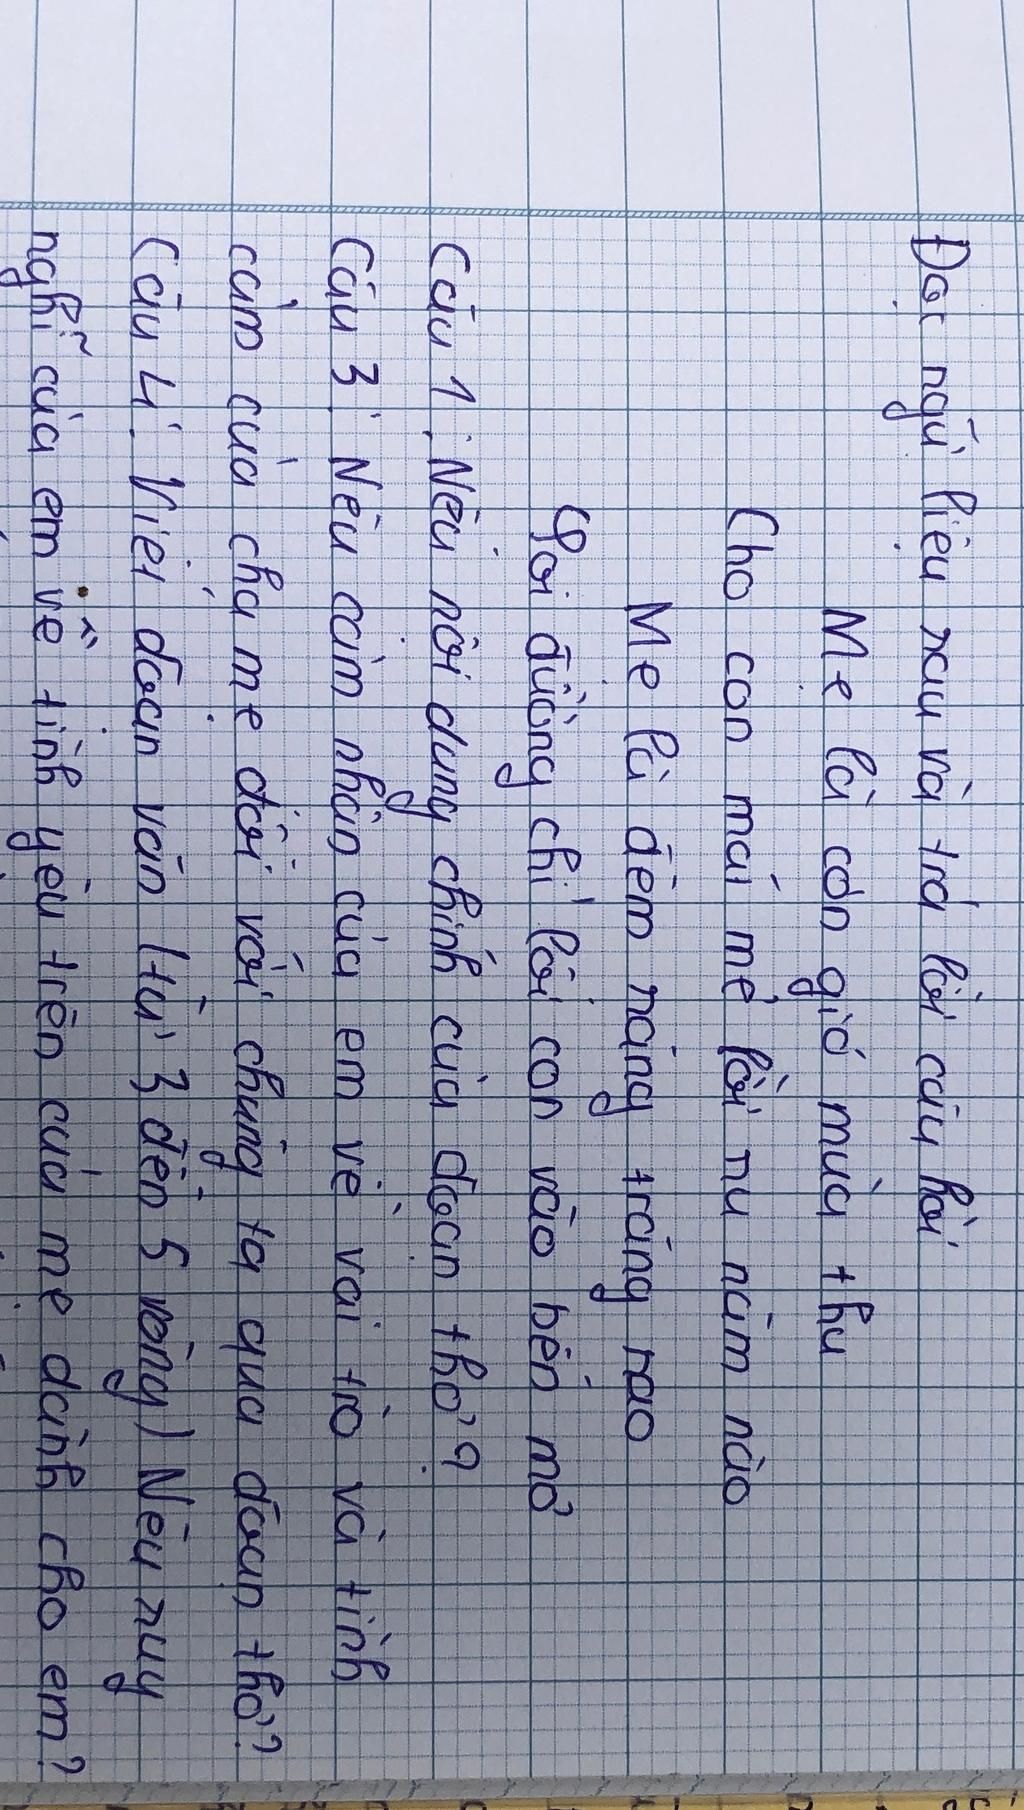 Đọc ngữ liệu sau và trả lời câu hỏi
Mẹ là cơn gió mùa thu
Cho con mát mẻ lời ru năm nào
Mẹ là đêm sáng trăng sao
Soi đường chỉ lối con vào bến mơ
Câu 1: Nêu nội dung chính của đoạn thơ?
Câu 3: Nêu cảm nhận của em về vai trò và tình
cảm của cha mẹ đối với chúng ta qua đoạn thơ?
Câu 4: Viết đoạn văn (từ 3 đến 5 vòng) Nêu suy
nghĩ của em về tình yêu trên của mẹ dành cho em?